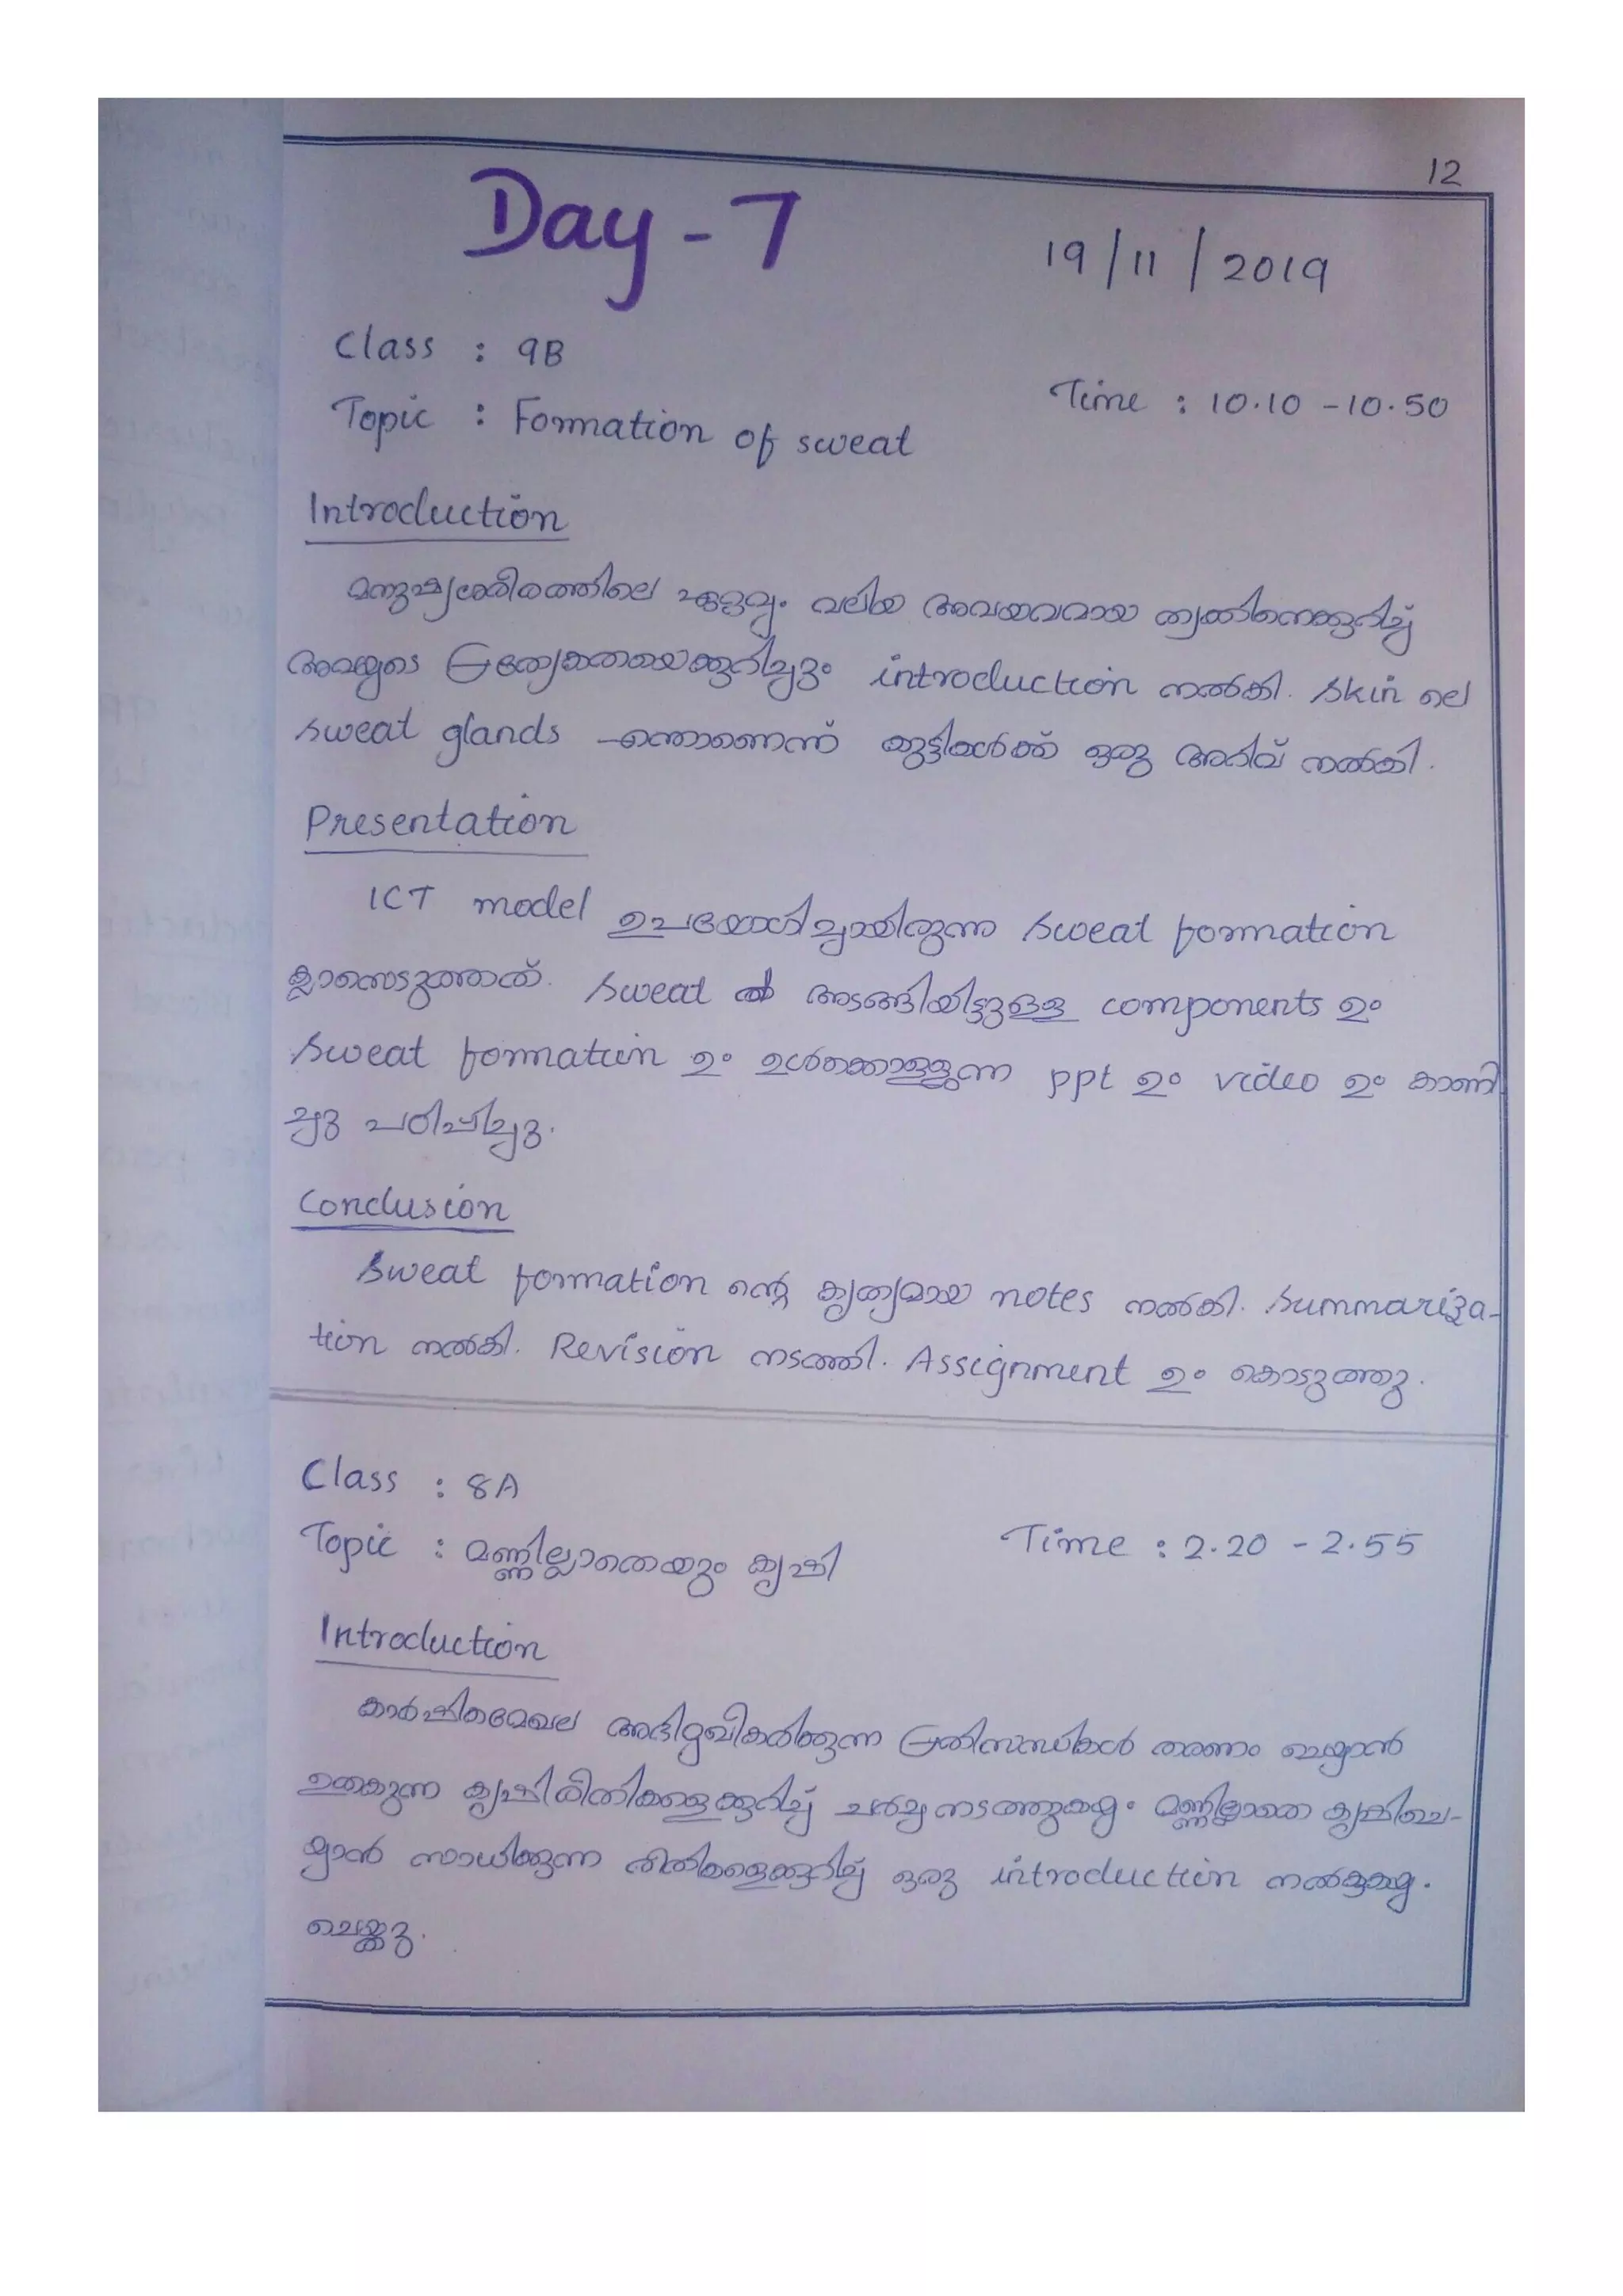 12
Day - 7
19/11/2019
Class : 9B
Time : 10.10 - 10.50
Topic : Formation of sweat
Introduction
മനുഷ്യശരീരത്തിലെ ഏറ്റവും വലിയ അവയവമായ ത്വക്കിനെക്കുറിച്ച്
അവയുടെ പ്രത്യേകതയെക്കുറിച്ചും introduction നൽകി. Skin ലെ
sweat glands എന്താണെന്ന് കുട്ടികൾക്ക് ഒരു അറിവ് നൽകി.
Presentation
ICT model ഉപയോഗിച്ചായിരുന്നു sweat formation
ക്ലാസെടുത്തത്. Sweat ൽ അടങ്ങിയിട്ടുള്ള components ഉം
sweat formation ഉം ഉൾക്കൊള്ളുന്ന ppt ഉം video ഉം കാണി
ച്ചു പഠിപ്പിച്ചു.
Conclusion
Sweat formation ന്റെ കൃത്യമായ notes നൽകി. Summariza-
tion നൽകി. Revision നടത്തി. Assignment ഉം കൊടുത്തു.
Class : 8A
Topic : മണ്ണില്ലാതെയും കൃഷി
Time : 2.20 - 2.55
Introduction
കാർഷികമേഖല അഭിമുഖീകരിക്കുന്ന പ്രതിസന്ധികൾ തരണം ചെയ്യാൻ
ഉതകുന്ന കൃഷിരീതികളെക്കുറിച്ച് ചർച്ച നടത്തുകയും മണ്ണില്ലാതെ കൃഷിചെ-
യ്യാൻ സാധിക്കുന്ന രീതികളെക്കുറിച്ച് ഒരു introduction നൽകുകയും
ചെയ്തു.